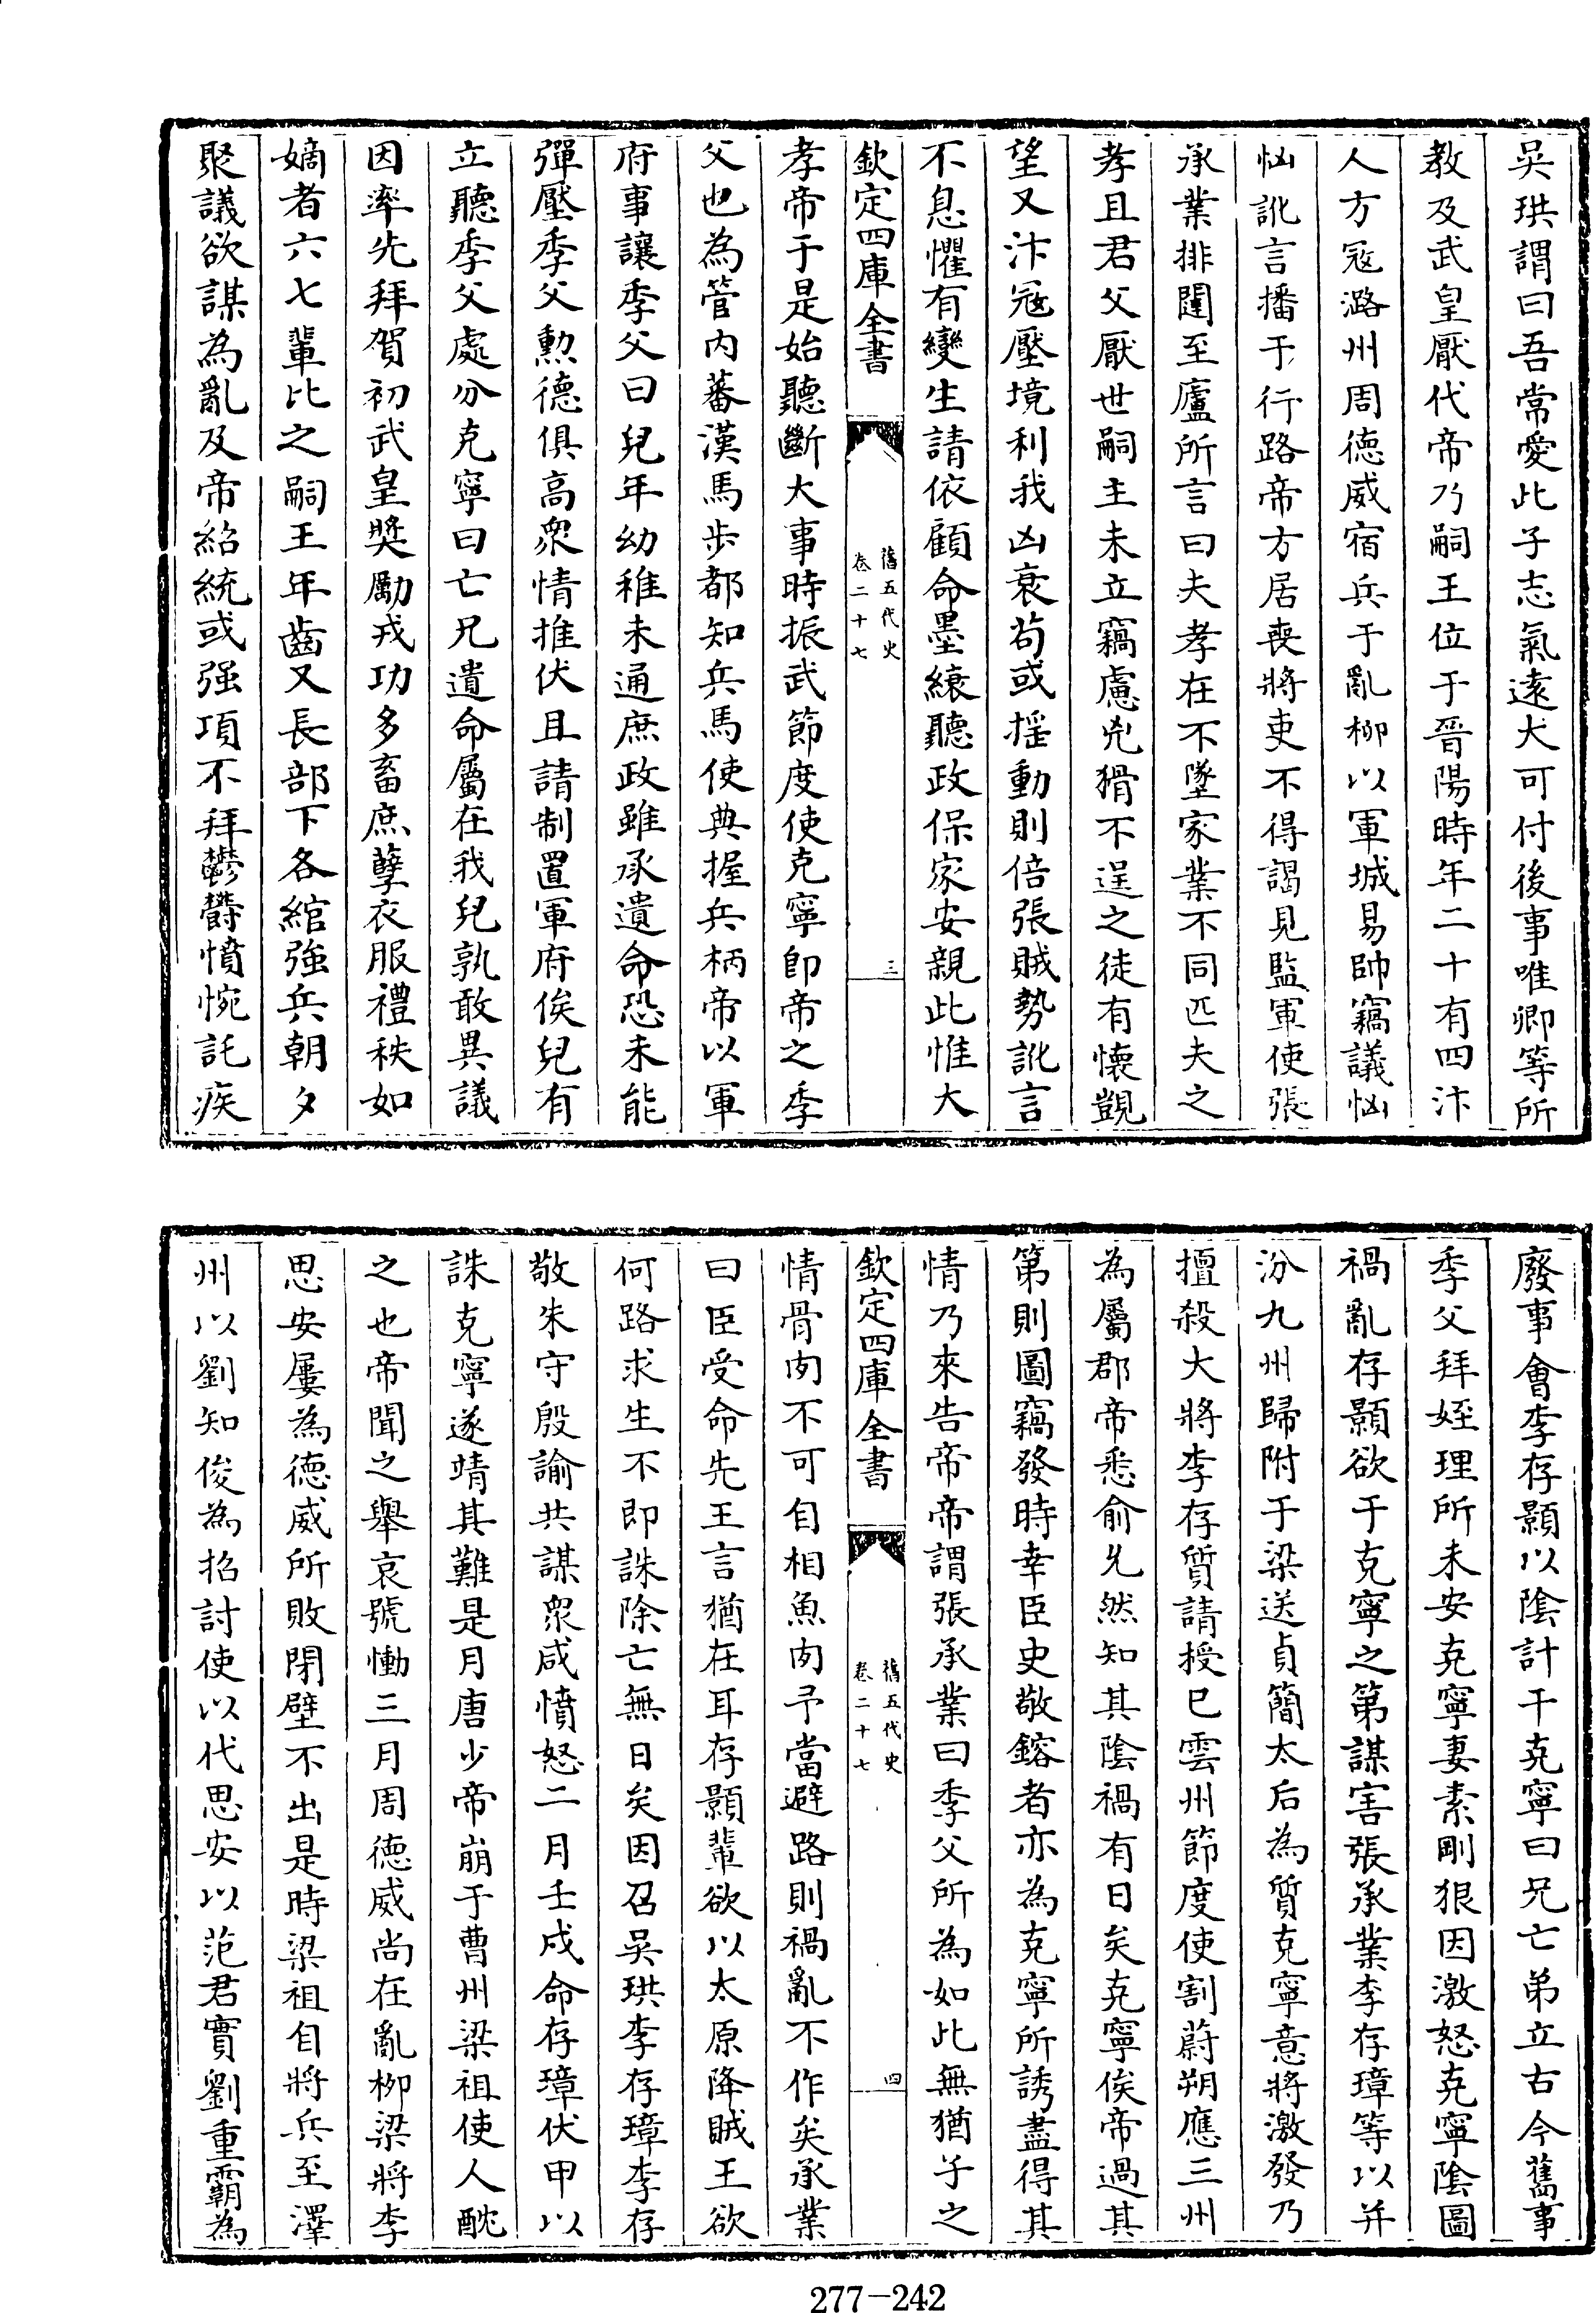 吳珙謂曰吾常愛此子志氣遠大可付後事唯卿等所
教及武皇厭代帝乃嗣王位于晉陽時年二十有四汴
人方冦潞州周德威宿兵于亂柳以軍城易帥竊議忷
忷訛言播于行路帝方居喪將吏不得謁見監軍使張
承業排闥至廬所言曰夫孝在不墜家業不同匹夫之
孝且君父厭世嗣主未立竊慮兇猾不逞之徒有懷覬
望又汴冦壓境利我凶衰苟或摇動則倍張賊勢訛言
不息懼有變生請依顧命墨縗聽政保家安親此惟大
欽定四庫全書
舊五代史
卷二十七
三
孝帝于是始聽斷大事時振武節度使克寧即帝之季
父也為管内蕃漢馬步都知兵馬使典握兵柄帝以軍
府事讓季父曰兒年幼稚未通庶政雖承遺命恐未能
彈壓季父勲德俱高衆情推伏且請制置軍府俟兒有
立聽季父處分克寧曰亡兄遺命屬在我兒孰敢異議
因率先拜賀初武皇奬勵戎功多畜庶孽衣服禮秩如
嫡者六七輩比之嗣王年齒又長部下各綰強兵朝夕
聚議欲謀為亂及帝紹統或强項不拜鬱鬱憤惋託疾
廢事會李存顥以陰計干克寧曰兄亡弟立古今舊事
季父拜姪理所未安克寧妻素剛狠因激怒克寧陰圖
禍亂存顥欲于克寧之第謀害張承業李存璋等以并
汾九州歸附于梁送貞簡太后為質克寧意將激發乃
擅殺大將李存質請授已雲州節度使割蔚朔應三州
為屬郡帝悉俞允然知其陰禍有日矣克寧俟帝過其
第則圖竊發時幸臣史敬鎔者亦為克寧所誘盡得其
情乃來告帝帝謂張承業曰季父所為如此無猶子之
欽定四庫全書
舊五代史
卷二十七
四
情骨肉不可自相魚肉予當避路則禍亂不作矣承業
曰臣受命先王言猶在耳存顥輩欲以太原降賊王欲
何路求生不即誅除亡無日矣因召吳珙李存璋李存
敬朱守殷諭共謀衆咸憤怒二月壬戌命存璋伏甲以
誅克寧遂靖其難是月唐少帝崩于曹州梁祖使人酖
之也帝聞之舉哀號慟三月周德威尚在亂柳梁將李
思安屢為德威所敗閉壁不出是時梁祖自將兵至澤
州以劉知俊為招討使以代思安以范君實劉重霸為
277-242